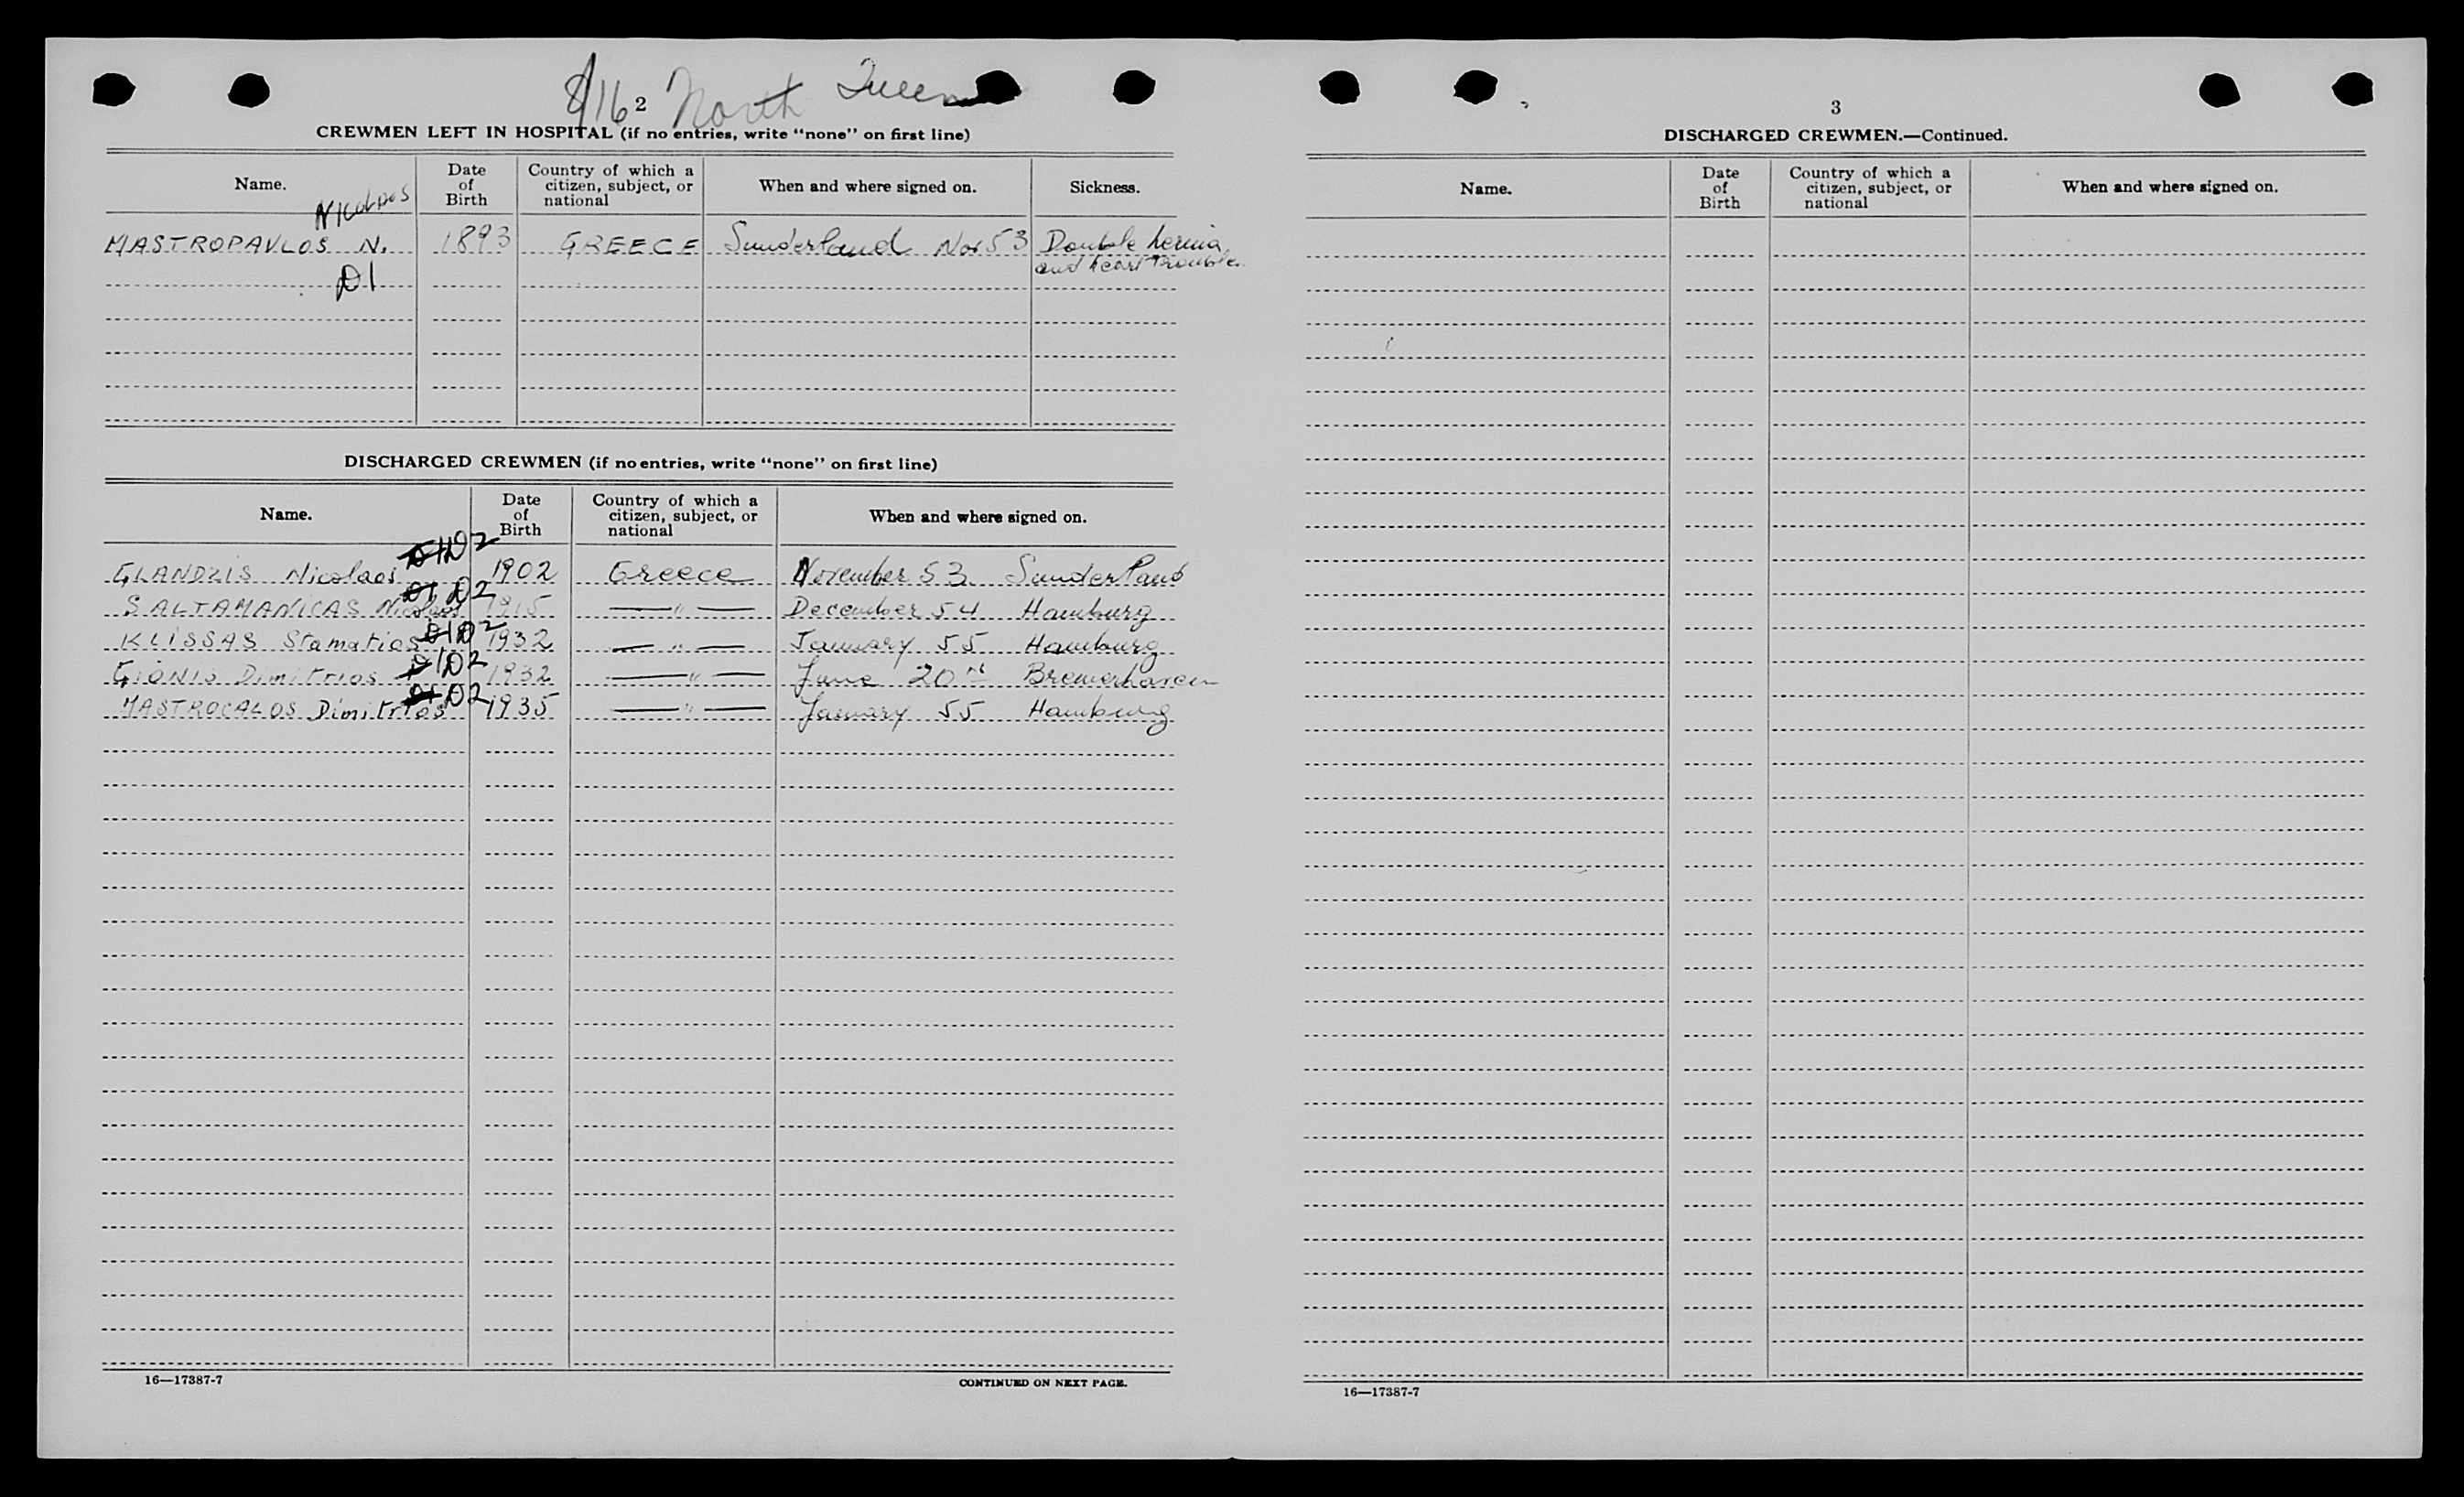 8/16 North Queen
2
CREWMEN LEFT IN HOSPITAL (if no entries, write "none" on first line)
Name. Date of Birth Country of which a citizen, subject, or national When and where signed on. Sickness.
Nicolaos
MASTROPAVLOS N. 1893 GREECE Sunderland Nov 53 Double hernia
and heart trouble.
D1
DISCHARGED CREWMEN (if no entries, write "none" on first line)
Name. Date of Birth Country of which a citizen, subject, or national When and where signed on.
GLANDZIS Nicolaos D1 D2 1902 Greece November 53 Sunderland
SALTAMANICAS Nicolaos D1 D2 1915 — " — December 54 Hamburg
KLISSAS Stamatios D1 D2 1932 — " — January 55 Hamburg
GIONIS Dimitrios D1 D2 1932 — " — June 20 Bremerhaven
MASTROCALOS Dimitrios D1 D2 1935 — " — January 55 Hamburg
16—17387-7 CONTINUED ON NEXT PAGE.
3
DISCHARGED CREWMEN.—Continued.
Name. Date of Birth Country of which a citizen, subject, or national When and where signed on.
16—17387-7